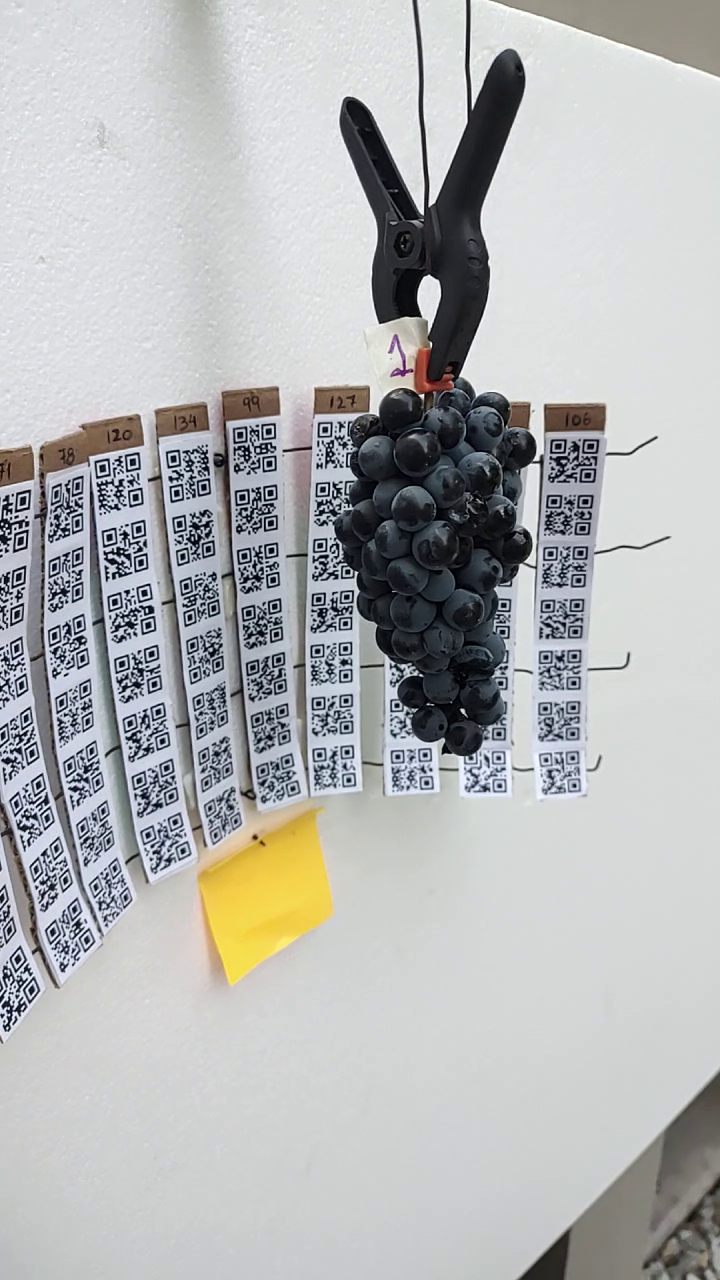 71
78
120
134
99
127
106
1